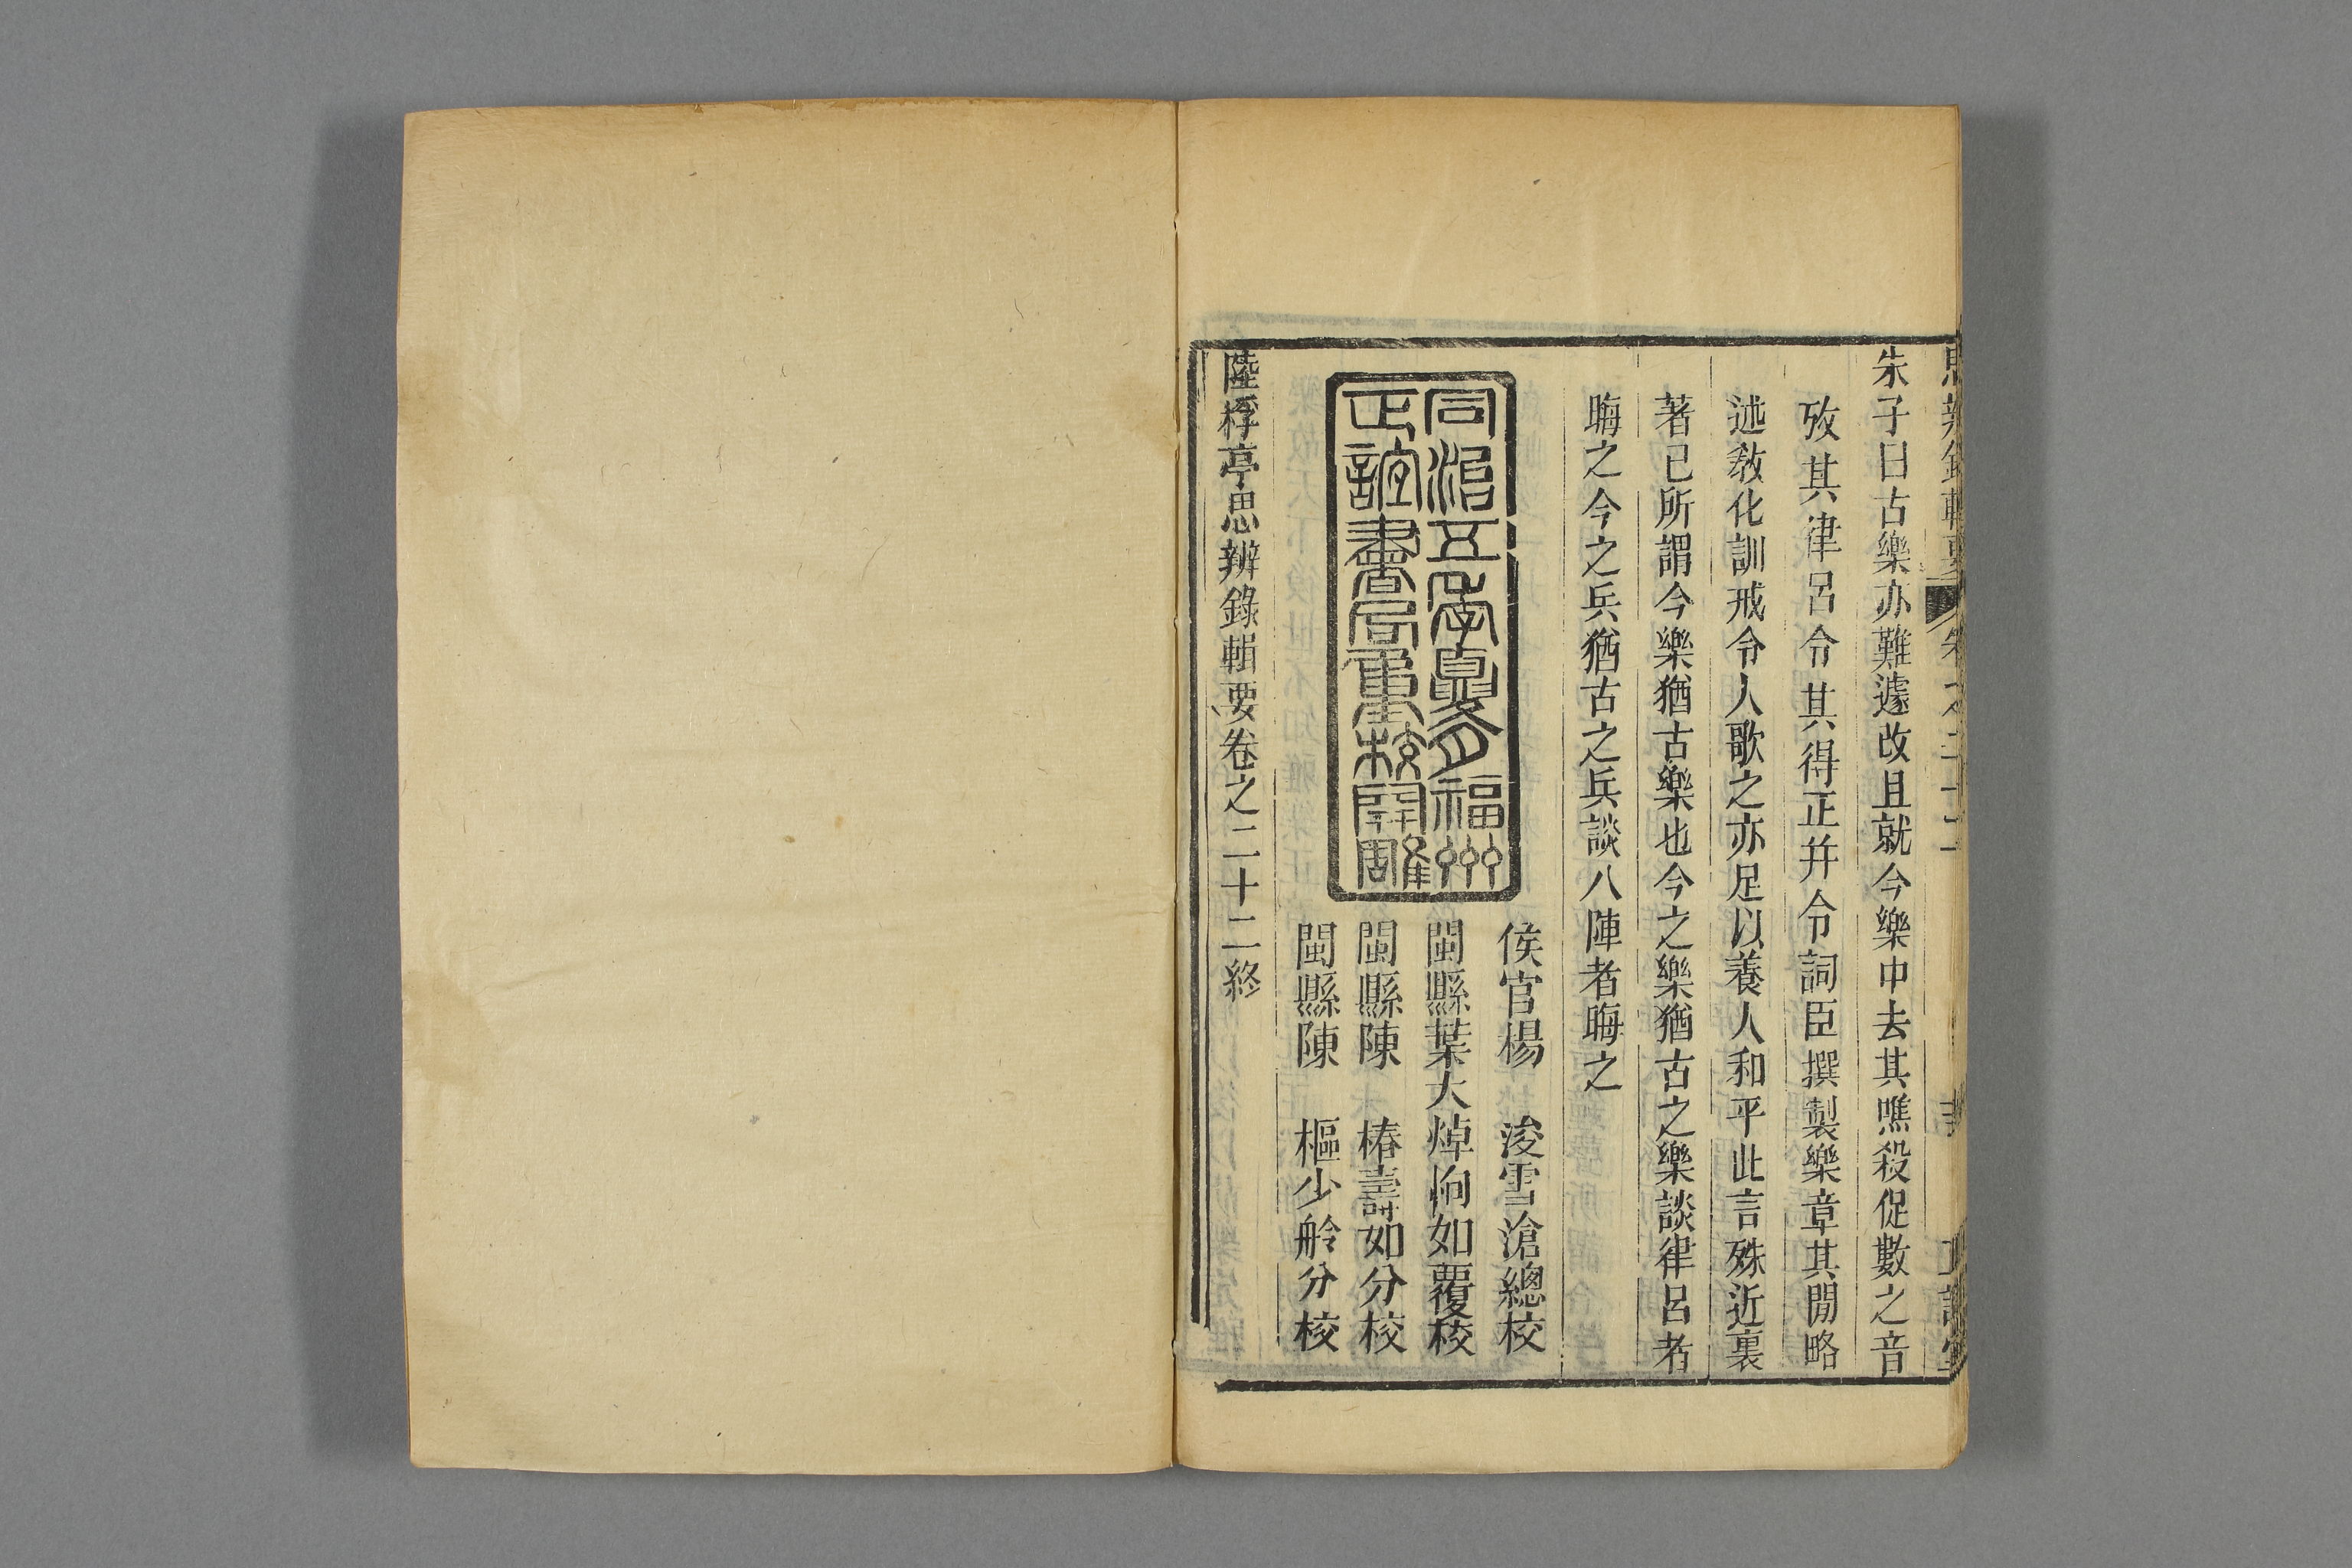 朱子曰古樂亦難遽改且就今樂中去其噍殺促數之音
攷其律呂令其得正并令詞臣撰製樂章其閒略
述敎化訓戒令人歌之亦足以養人和平此言殊近裏
著己所謂今樂猶古樂也今之樂猶古之樂談律呂者
晦之今之兵猶古之兵談八陣者晦之
同治五年夏月福州
正誼書局重校開雕
侯官楊 浚雪滄總校
閩縣葉大焯恂如覆校
閩縣陳 椿壽如分校
閩縣陳 樞少舲分校
陸桴亭思辨錄輯要卷之二十二終